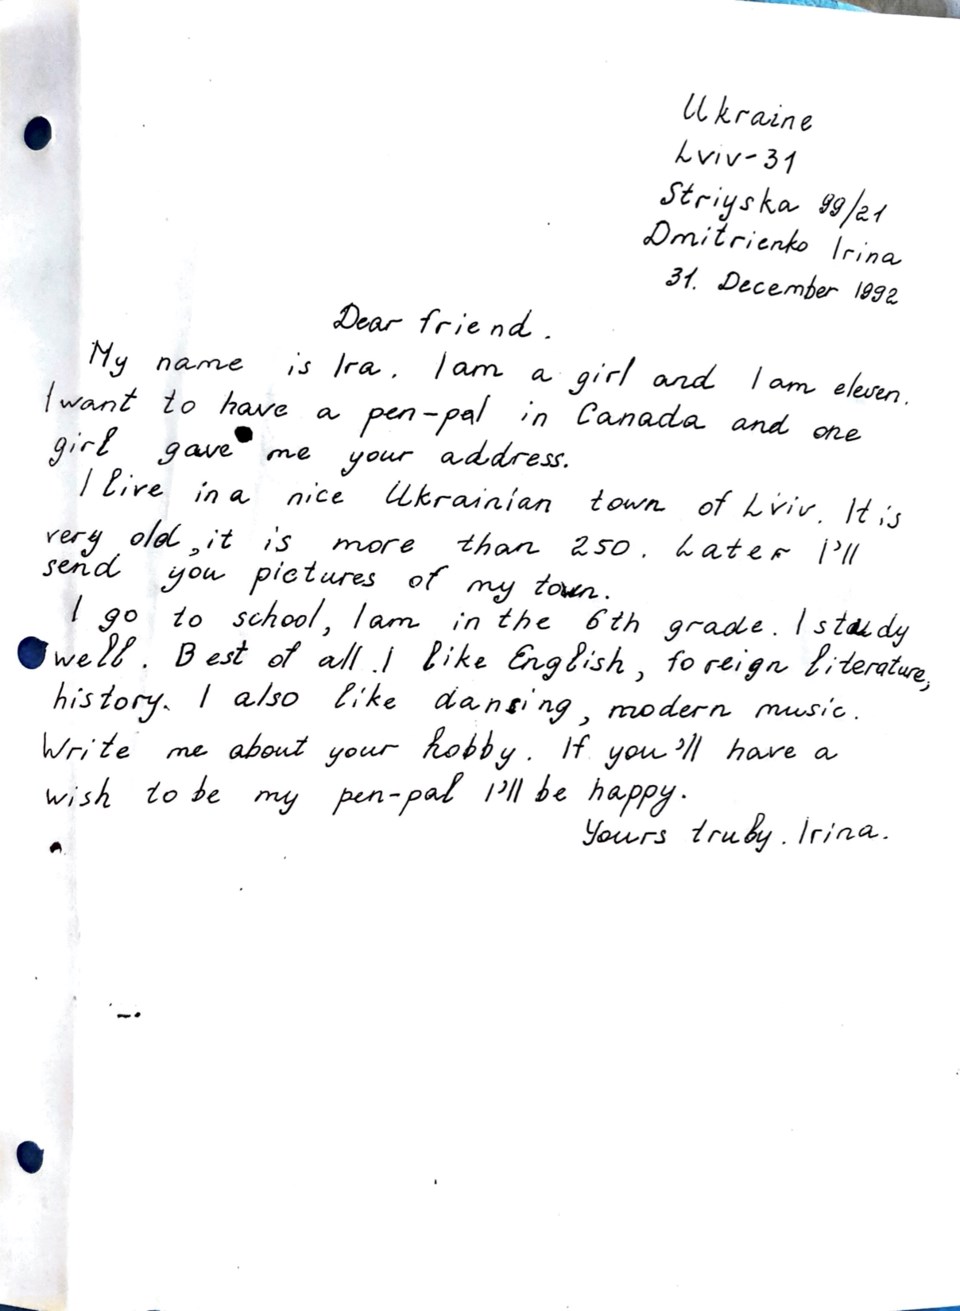 Ukraine
Lviv-31
Striyska 99/21
Dmitrienko Irina
31. December 1992
Dear friend.
My name is Ira. I am a girl and I am eleven.
I want to have a pen-pal in Canada and one
girl gave me your address.
I live in a nice Ukrainian town of Lviv. It is
very old, it is more than 250. Later I'll
send you pictures of my town.
I go to school, I am in the 6th grade. I study
well. Best of all I like English, foreign literature,
history. I also like dansing, modern music.
Write me about your hobby. If you'll have a
wish to be my pen-pal I'll be happy.
Yours truly. Irina.